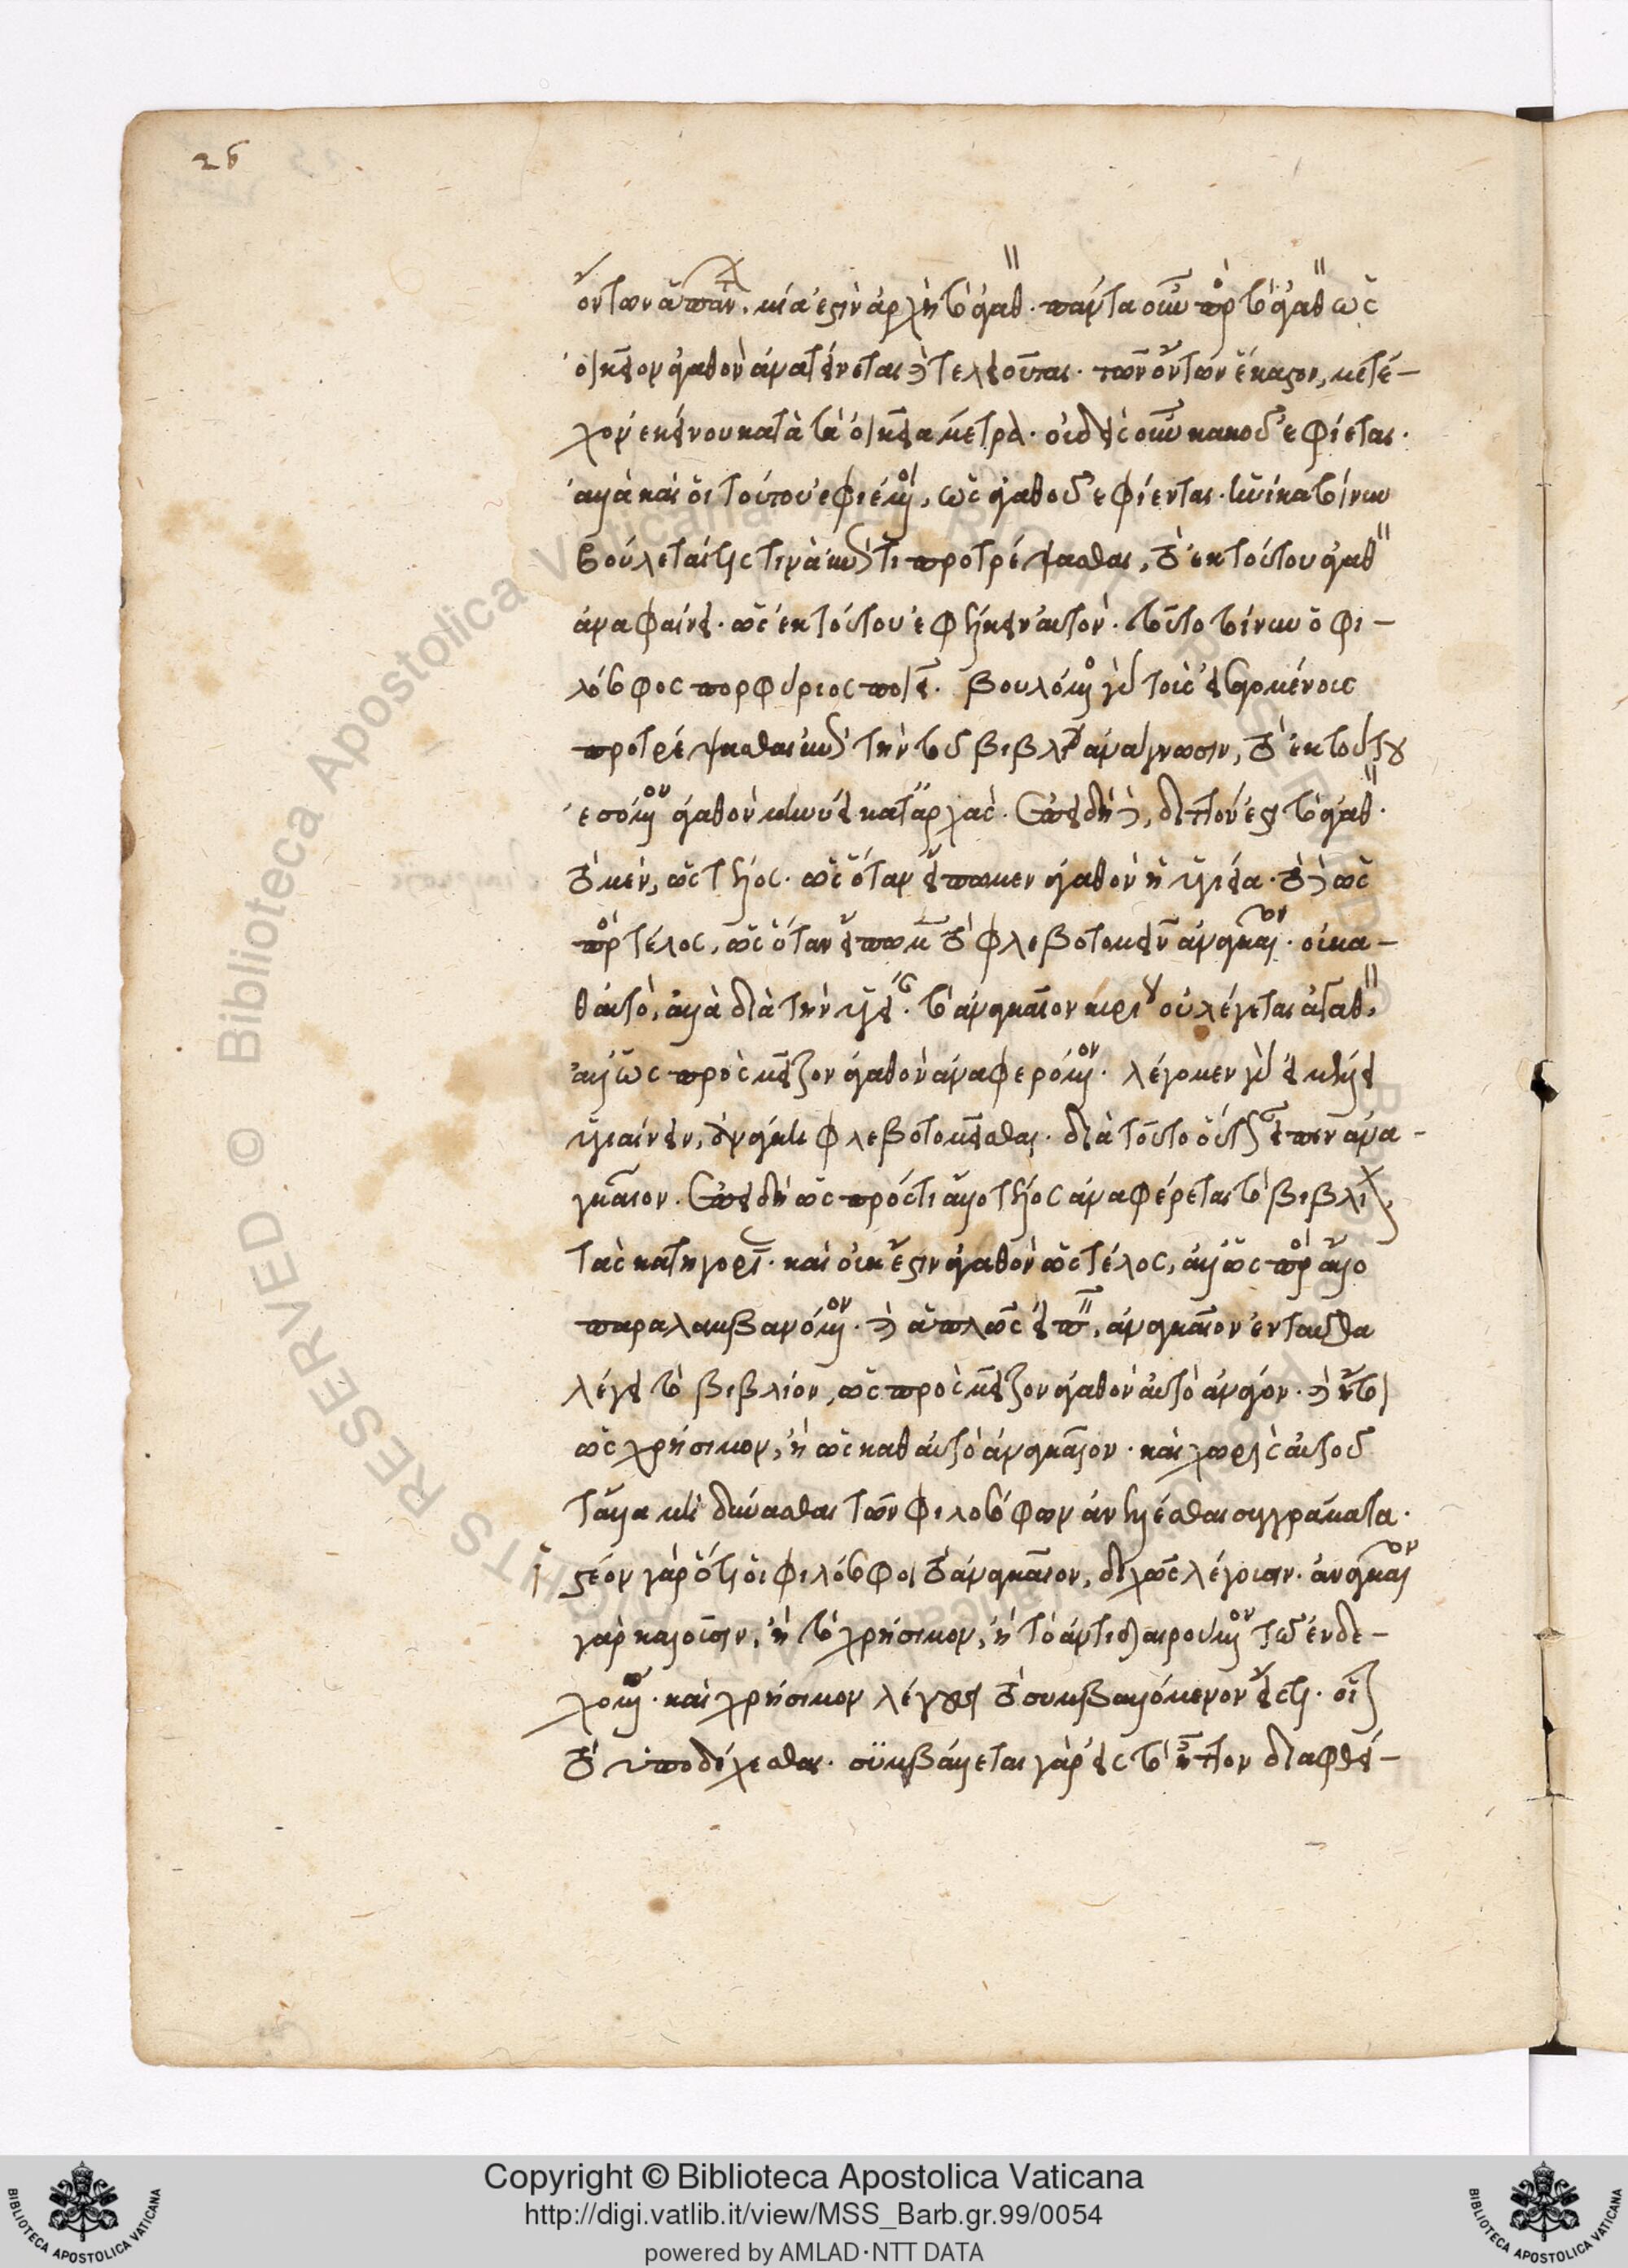 26
ὄντων ἁπάντ. μία ἐστὶν ἀρχὴ τὸ ἀγαθ. πάντα οὖν πρὸς τὸ ἀγαθ ὡς
οἰκεῖον ἀγαθὸν ἀνατείνεται καὶ τελειοῦται. τῶν ὄντων ἕκαστον, μετέ-
χον ἐκείνου κατὰ τὰ οἰκεῖα μέτρα. οὐδεὶς οὖν κακοῦ ἐφίεται.
ἀλλὰ καὶ οἱ τούτου ἐφιέμενοι, ὡς ἀγαθοῦ ἐφίενται. ἡνίκα τοίνυν
βούλεταί τις τινὰ ἐπί τι προτρέψασθαι, τὸ ἐκ τούτου ἀγαθ
ἀναφαίνει. ὡς ἐκ τούτου ἐφέλκειν αὐτόν. τοῦτο τοίνυν ὁ φι-
λόσοφος πορφύριος ποιεῖ. βουλόμενος γὰρ τοὺς εἰσαγομένους
προτρέψασθαι ἐπὶ τὴν τοῦ βιβλίου ἀνάγνωσιν, τὸ ἐκ τούτου
ἐσόμενον ἀγαθὸν μηνύει κατ' ἀρχάς. ἐπειδὴ καὶ, διττόν ἐστι τὸ ἀγαθ.
τὸ μὲν, ὡς τέλος. ὡς ὅταν εἴπωμεν ἀγαθὸν ἡ ὑγιεία. τὸ καὶ ὡς
πρὸς τέλος, ὡς ὅταν εἴπωμεν τὸ φλεβοτομεῖν ἀναγκαῖον. οὐ κα-
θ' αὑτὸ, ἀλλὰ διὰ τὴν ὑγείαν. τὸ ἀναγκαῖον κυρίου οὐ λέγεται ἀγαθ,
ἀλλ' ὡς πρὸς μεῖζον ἀγαθὸν ἀναφερόμενον. λέγομεν γὰρ εἰ μέλλει
ὑγιαίνειν, ἀνάγκη φλεβοτομεῖσθαι. διὰ τοῦτο οὕτως εἶπεν ἀνα-
γκαῖον. ἐπειδὴ ὡς πρός τι ἄλλο τέλος ἀναφέρεται τὸ βιβλίον,
τὰς κατηγορί. καὶ οὐκ ἔστιν ἀγαθὸν ὡς τέλος, ἀλλ' ὡς πρὸς ἄλλο
παραλαμβανόμενον. καὶ ἁπλῶς εἰπεῖν, ἀναγκαῖον ἐνταῦθα
λέγει τὸ βιβλίον, ὡς πρὸς μεῖζον ἀγαθὸν αὐτὸ ἀνάγων. καὶ ἤτοι
ὡς χρήσιμον, ἢ ὡς καθ' αὑτὸ ἀναγκαῖον. καὶ χωρὶς αὐτοῦ
τἄλλα μὴ δύνασθαι τῶν φιλοσόφων ἀνελέσθαι συγγράμματα.
ἰστέον γὰρ ὅτι οἱ φιλόσοφοι τὸ ἀναγκαῖον, διχῶς λέγουσιν. ἀναγκαῖον
γὰρ καλοῦσιν, ἢ τὸ χρήσιμον, ἢ τὸ ἀντιδιαιρούμενον τῷ ἐνδε-
χομένῳ. καὶ χρήσιμον λέγουσι τὸ συμβαλλόμενον εἴς τι. οἷον
τὸ ὑποδέχεσθαι. συμβάλλεται γὰρ εἰς τὸ ἧττον διαφθεί-
Copyright © Biblioteca Apostolica Vaticana
http://digi.vatlib.it/view/MSS_Barb.gr.99/0054
powered by AMLAD·NTT DATA